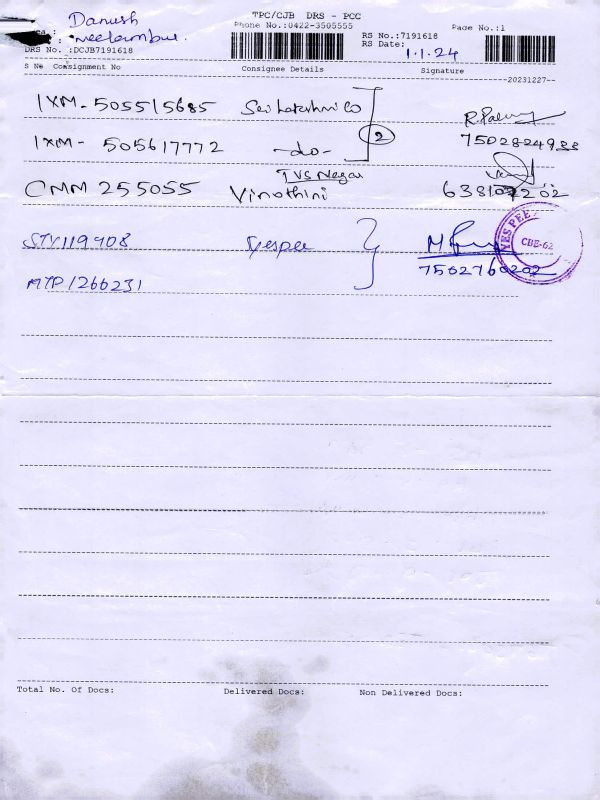 Danush
TPC/CJB DRS - PCC
Phone No.:0422-3505555
Page No.:1
: Neelambur.
RS No.:7191618
DRS No. :DCJB7191618
RS Date: 1.1.24
S No Consignment No Consignee Details Signature
--20231227--
IXM-505515685 Sai Lakshmi Co
IXM- 505617772 -do- 2 7502824988
TVS Nagar
CMM 255055 Vinothini
STV119408 Yespee YES PEE CBE-62
7502760202
MTP1266231
Total No. Of Docs: Delivered Docs: Non Delivered Docs: